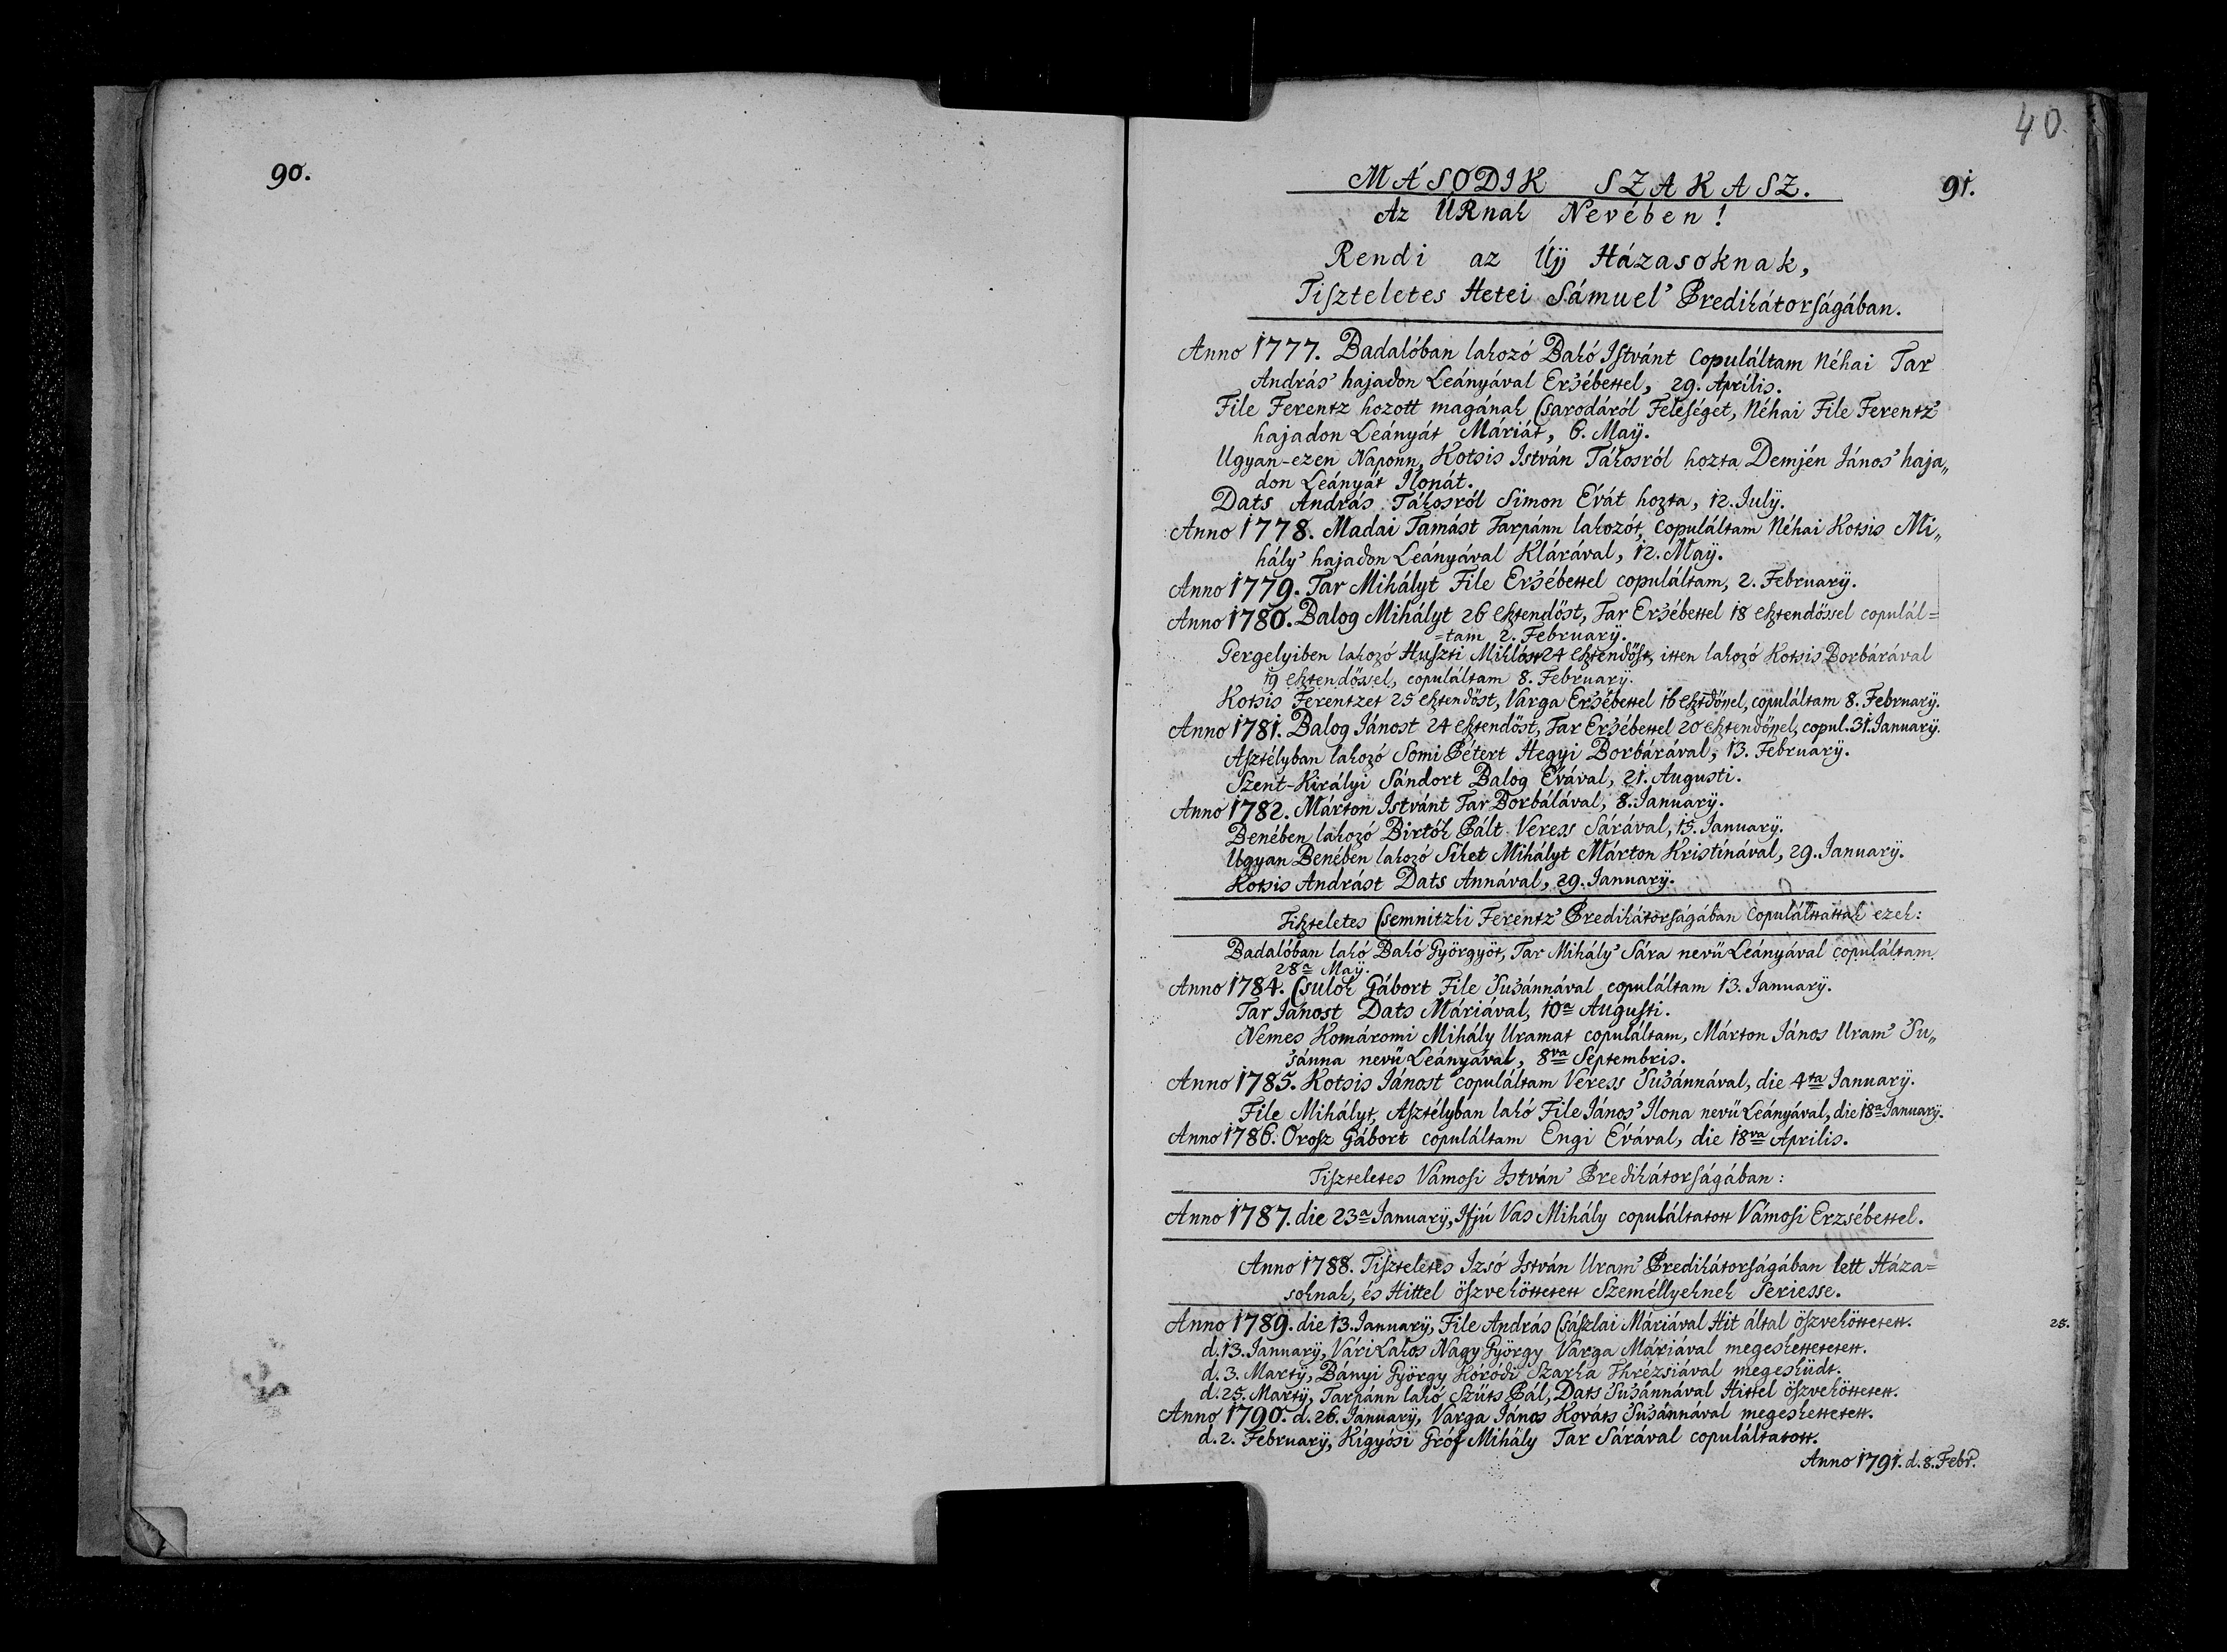 90.
40.
91.
MÁSODIK SZAKASZ.
Az ÚRnak Nevében!
Rendi az Új Házasoknak,
Tiszteletes Hetei Sámuel' Predikátorságában.
Anno 1777. Badalóban lakozó Bakó Istvánt Copuláltam Néhai Tar
András' hajadon Leányával Ersébettel, 29. Aprilis.
File Ferentz hozott magának Csarodáról Feleséget, Néhai File Ferentz'
hajadon Leányát Máriát, 6. Maÿ.
Ugyan-ezen Naponn, Kotsis István Tákosról hozta Demjén János' haja„
don Leányát Ilonát.
Dats András Tákosról Simon Évát hozta, 12. Julÿ.
Anno 1778. Madai Tamást Tarpánn lakozót, copuláltam Néhai Kotsis Mi„
hály' hajadon Leányával Klárával, 12. Maÿ.
Anno 1779. Tar Mihályt File Ersébettel copuláltam, 2. Februarÿ.
Anno 1780. Balog Mihályt 26 esztendőst, Tar Ersébettel 18 esztendőssel copulál=
=tam 2. Februarÿ.
Gergelyiben lakozó Huszti Miklóst 24 esztendőst, itten lakozó Kotsis Borbárával
19 esztendőssel, copuláltam 8. Februarÿ.
Kotsis Ferentzet 25 esztendőst, Varga Ersébettel 16 esztdőssel, copuláltam 8. Februarÿ.
Anno 1781. Balog Jánost 24 esztendőst, Tar Ersébettel 20 esztendőssel, copul. 31. Januarÿ.
Asztélyban lakozó Somi Pétert Hegyi Borbárával, 13. Februarÿ.
Szent-Királyi Sándort Balog Évával, 21. Augusti.
Anno 1782. Márton Istvánt Tar Borbálával, 8. Januarÿ.
Benében lakozó Birtók Pált Veress Sárával, 15. Januarÿ.
Ugyan Benében lakozó Siket Mihályt Márton Kristínával, 29. Januarÿ.
Kotsis Andrást Dats Annával, 29. Januarÿ.
Tiszteletes Csemnitzki Ferentz' Predikátorságában Copuláltattak ezek:
Badalóban lakó Bakó Györgyöt, Tar Mihály' Sára nevű Leányával copuláltam
28a Maÿ.
Anno 1784. Csulok Gábort File Susánnával copuláltam 13. Januarÿ.
Tar Jánost Dats Máriával, 10a Augusti.
Nemes Komáromi Mihály Uramat copuláltam, Márton János Uram' Su„
sánna nevű Leányával, 8va Septembris.
Anno 1785. Kotsis Jánost copuláltam Veress Susánnával, die 4ta Januarÿ.
File Mihályt, Asztélyban lakó File János' Ilona nevű Leányával, die 18a Januarÿ.
Anno 1786. Orosz Gábort copuláltam Engi Évával, die 18va Aprilis.
Tiszteletes Vámosi István' Predikátorságában:
Anno 1787. die 23a Januarÿ, Ifjú Vas Mihály copuláltatott Vámosi Erzsébettel.
Anno 1788. Tiszteletes Izsó István Uram' Predikátorságában lett Háza=
soknak, és Hittel öszveköttetett Személlyeknek Seriesse.
Anno 1789. die 13. Januarÿ, File András Császlai Máriával Hit által öszveköttetett.
25.
d. 13. Januarÿ, Vári Lakos Nagy György Varga Máriával megeskettetetett.
d. 3. Martÿ, Bányi György Kóródi Szarka Thrézsiával megesküdt.
d. 25. Martÿ, Tarpánn lakó Szűts Pál, Dats Susánnával Hittel öszveköttetett.
Anno 1790. d. 26. Januarÿ, Varga János Kováts Susánnával megeskettetett.
d. 2. Februarÿ, Kígyósi Gróf Mihály Tar Sárával copuláltatott.
Anno 1791. d. 8. Febr.